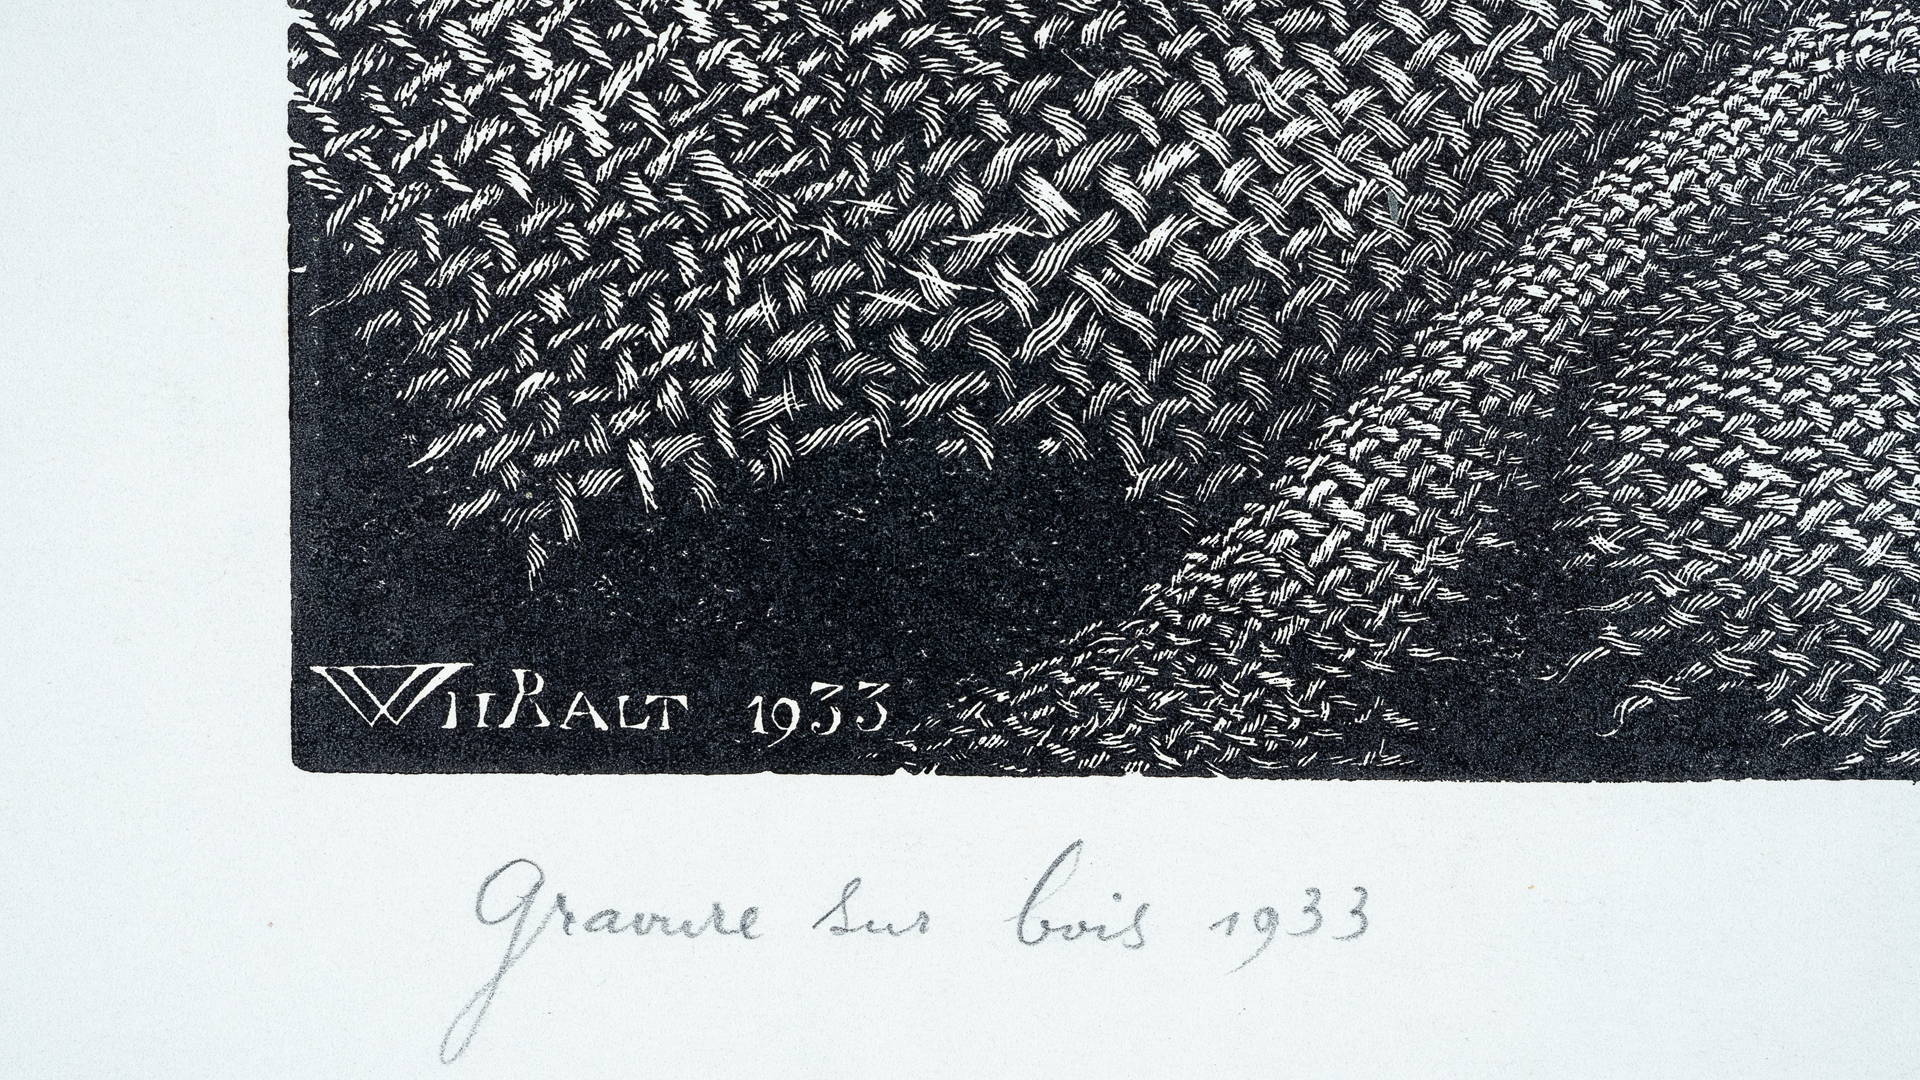 WIIRALT 1933
Gravure sur bois 1933